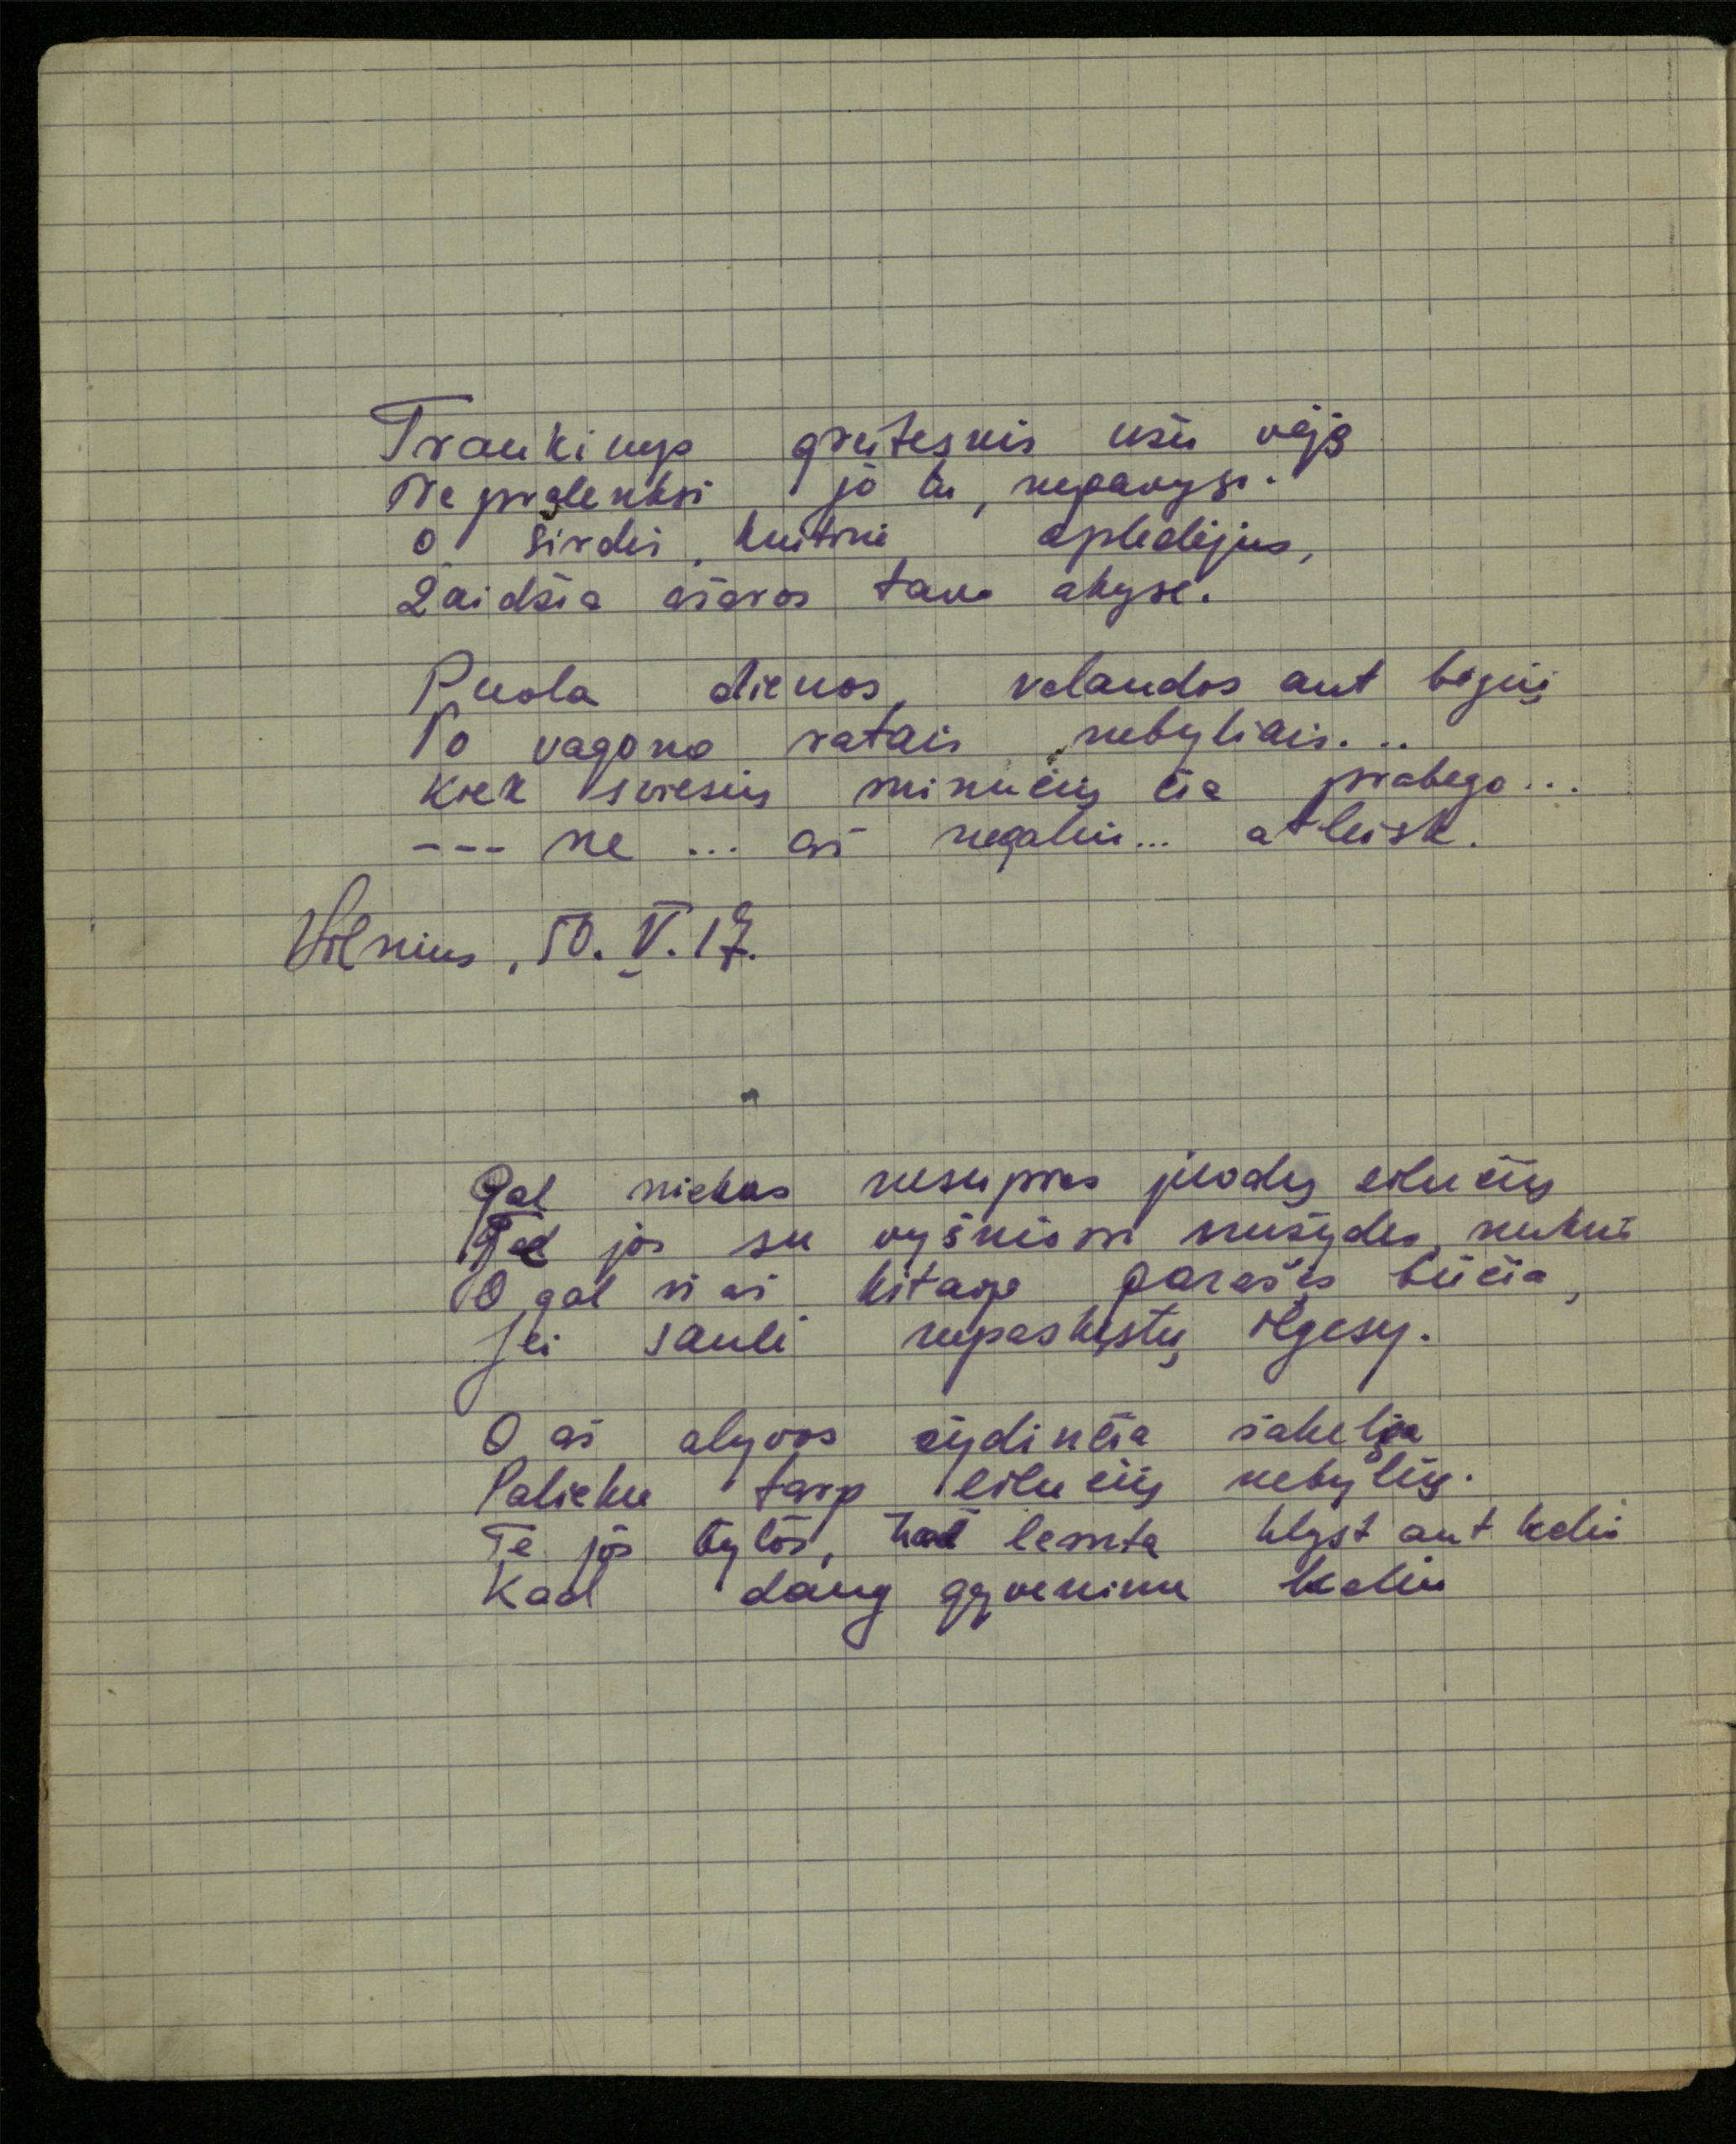 Traukinys greitesnis usž vėją
Nepralenksi jo tu, nepavysi.
O širdis, kuitinė apledėjus,
Žaidžia ašaros tavo akyse.
Puola dienos, valandos ant bėgių
Po vagono ratais nebyliais...
Kiek šviesių minučių čia prabėgo...
--- ne ... aš negaliu... atleisk.
Vilnius, 50. V. 17.
Gal niekas nesupras juodų eilučių
Te jos su vyšniom nužydės, nukris
O gal ir aš kitaip parašęs būčia,
Jei saulė nepaskęstų ilgesy.
O aš alyvos žydinčia šakelę
Palieku tarp eilučių nebylių.
Te jos tylės, kad lemta klyst ant kelio
Kad daug gyvenime kelių